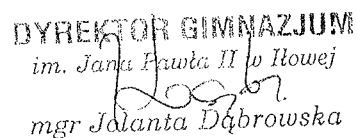 DYREKTOR GIMNAZJUM
im. Jana Pawła II w Iłowej
mgr Jolanta Dąbrowska